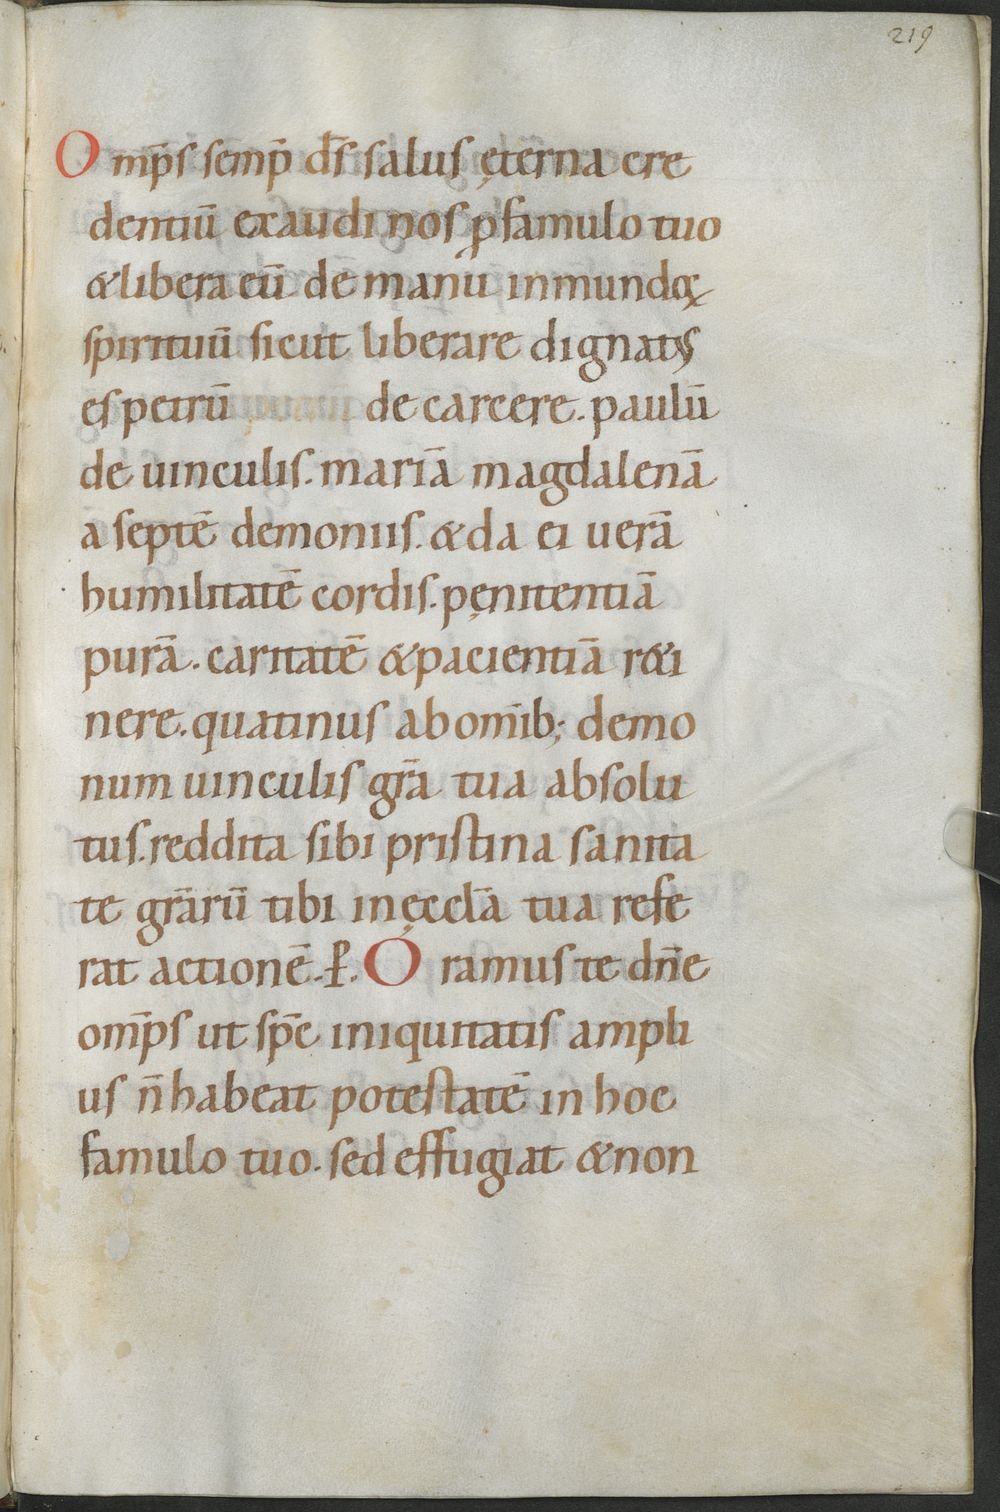 219
Omp̄s semp̄ d̄s salus ęterna cre
dentiū exaudi nos ꝓ famulo tuo
& libera eū de manu inmundoꝝ
spirituū sicut liberare dignatus
es petrū de carcere. paulū
de uinculis. mariā magdalenā
a septē demoniis. & da ei uerā
humilitatē cordis. pęnitentiā
purā. caritatē & pacientiā r&i
nere. quatinus ab om̄ib; demo
num uinculis gr̄a tua absolu
tus. reddita sibi pristina sanita
te gr̄arū tibi in ęccl̄a tua refe
rat actionē. P̱. Oramus te dn̄e
om̄ps ut sp̄c iniquitatis ampli
us n̄ habeat potestatē in hoc
famulo tuo. sed effugiat & non